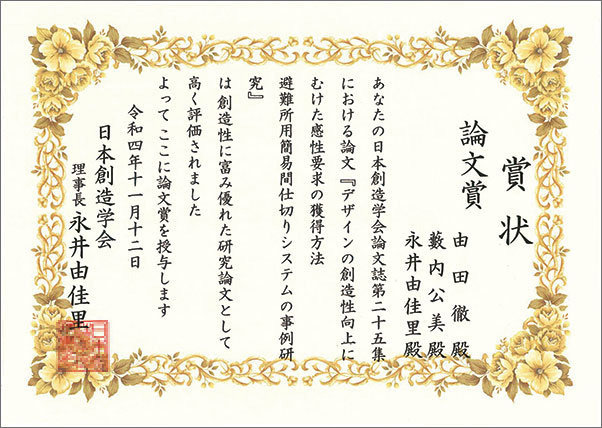 賞状
論文賞
由田徹殿
藪内公美殿
永井由佳里殿
あなたの日本創造学会論文誌第二十五集
における論文『デザインの創造性向上に
むけた感性要求の獲得方法
避難所用簡易間仕切りシステムの事例研
究』
は 創造性に富み優れた研究論文として
高く評価されました
よって ここに論文賞を授与します
令和四年十一月十二日
日本創造学会
理事長 永井由佳里